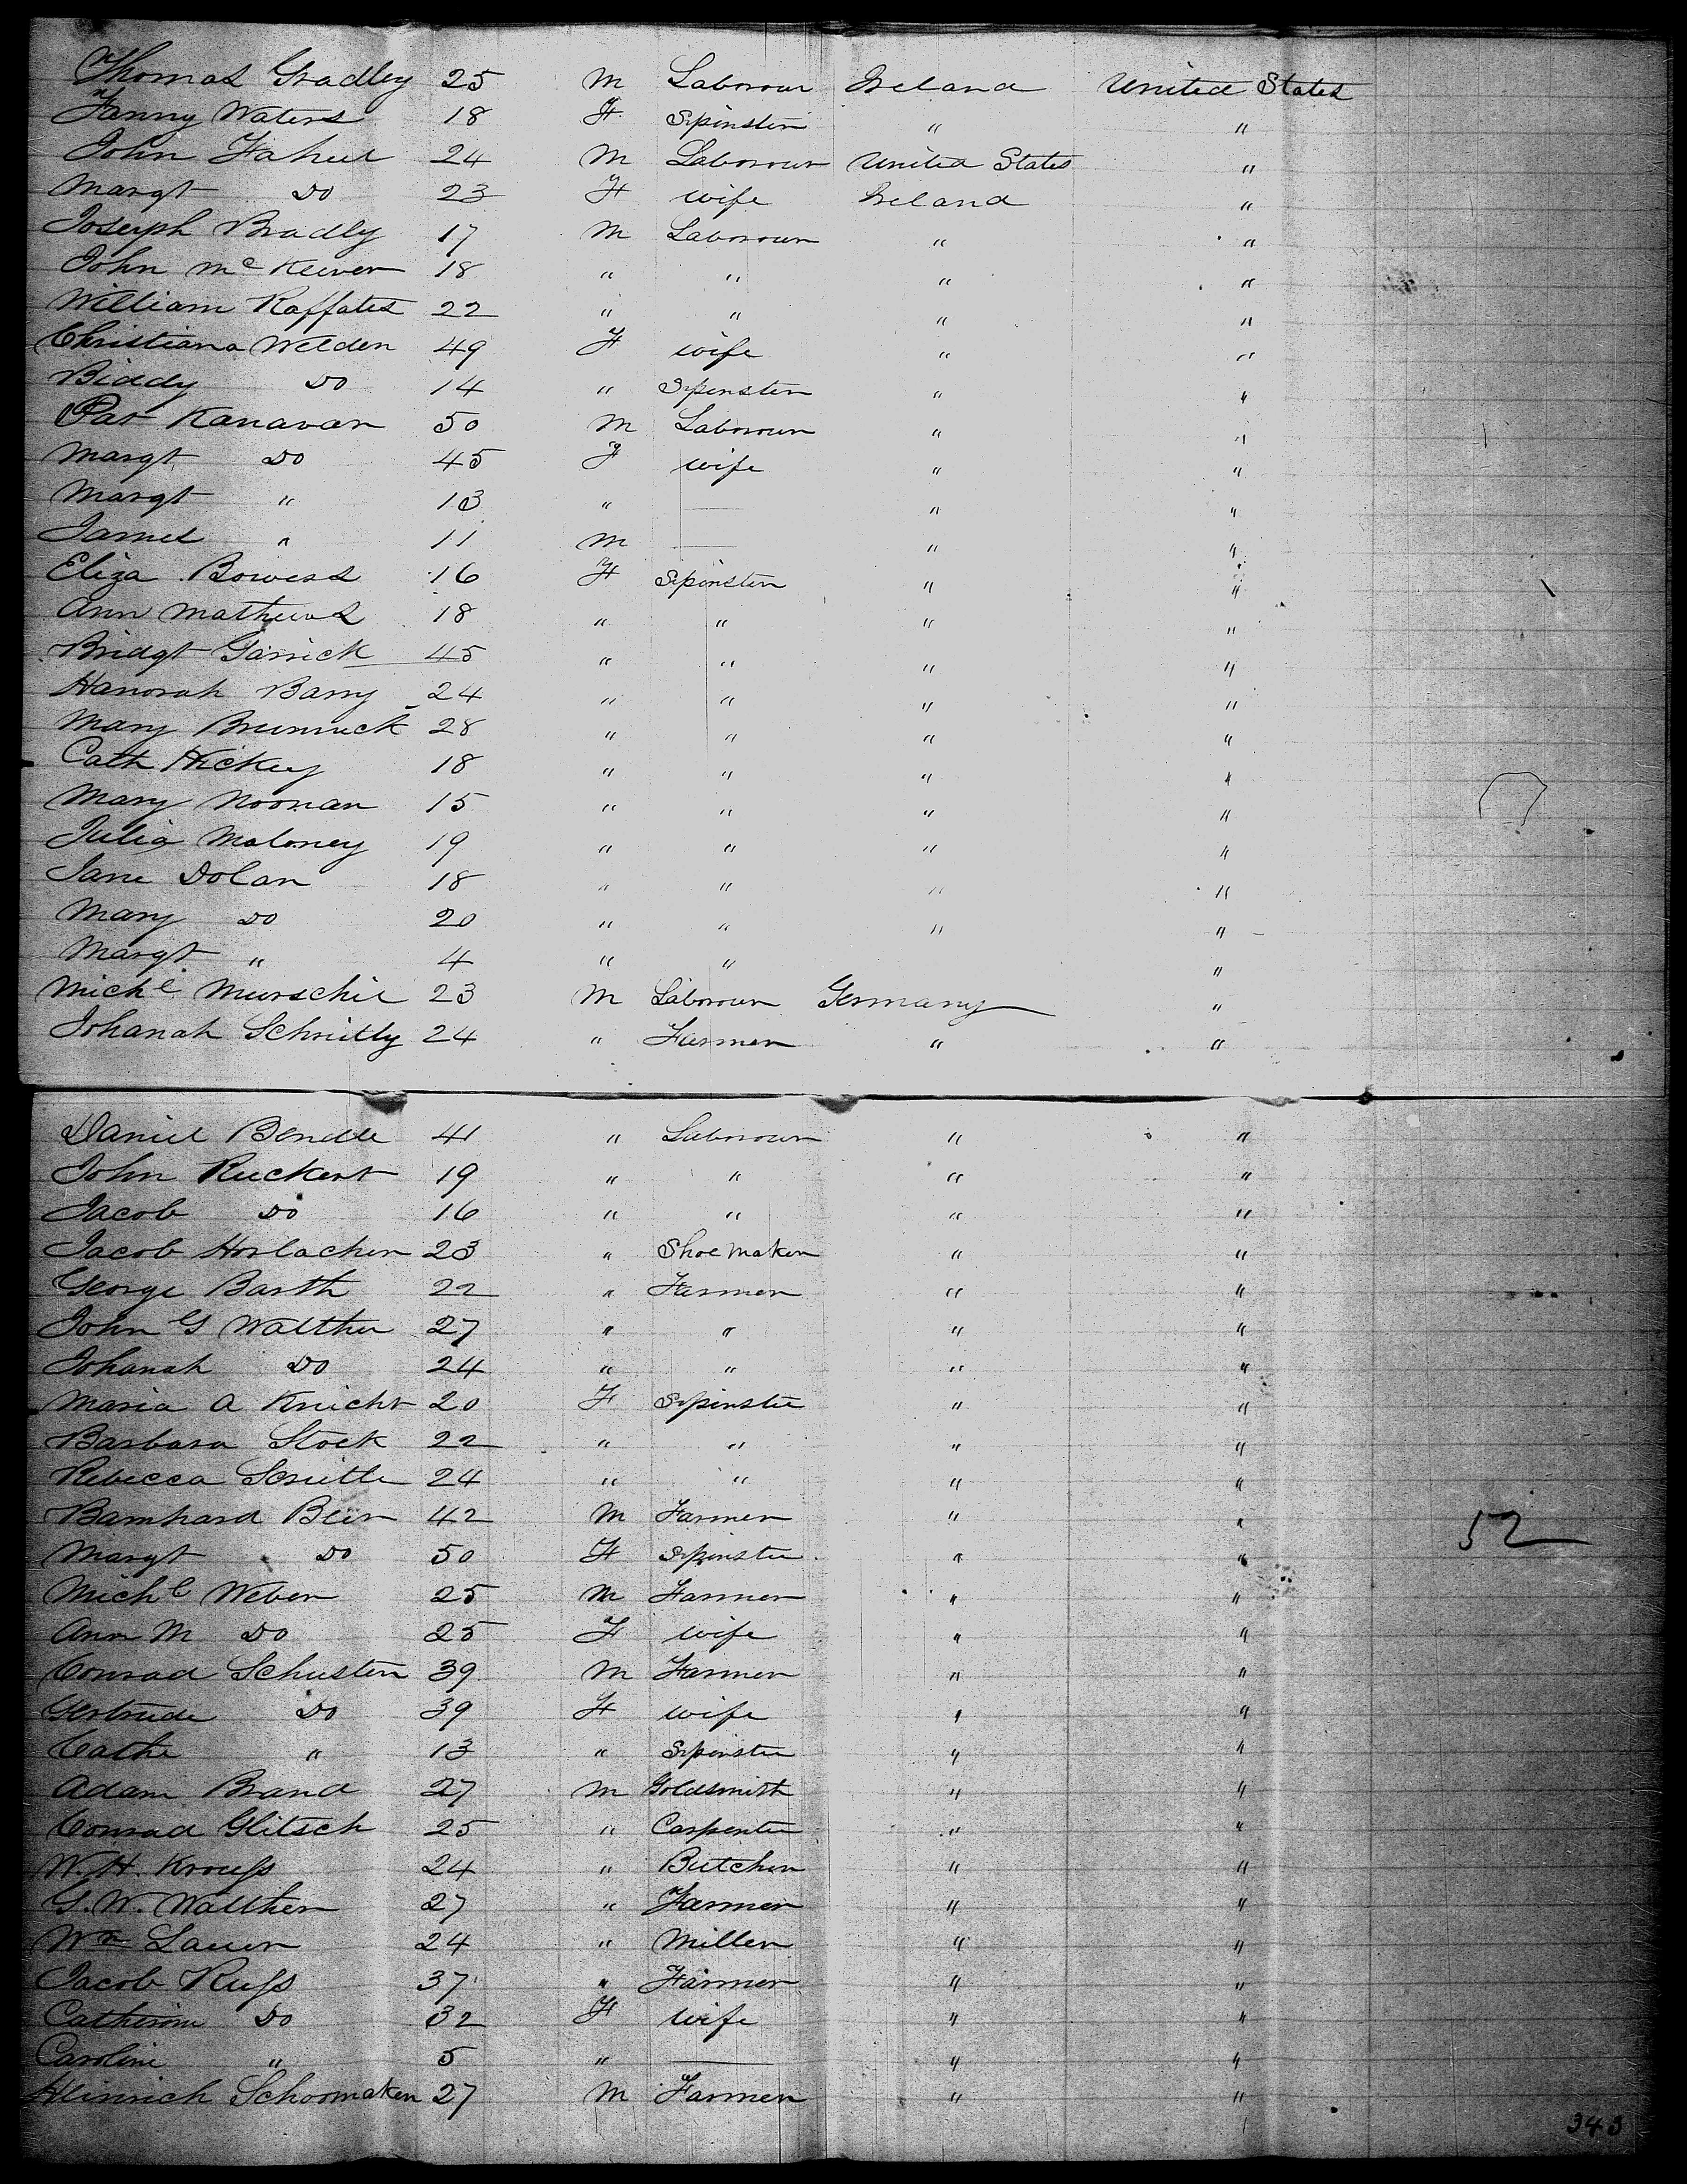 Thomas Gradley 25 M Labourer Ireland United States
Fanny Waters 18 F Spinster " "
John Fahee 24 M Labourer United States "
Margt Do 23 F wife Ireland "
Joseph Bradly 17 M Labourer " "
John McKeever 18 " " " "
William Raffates 22 " " " "
Christiana Welden 49 F wife " "
Biddy Do 14 " Spinster " "
Pat Kanavan 50 M Labourer " "
Margt Do 45 F wife " "
Margt " 13 " — " "
James " 11 M — " "
Eliza Bowess 16 F Spinster " "
Ann Mathews 18 " " " "
Bridgt Garrick 45 " " " "
Hanorah Barry 24 " " " "
Mary Brunnick 28 " " " "
Cath Hickey 18 " " " "
Mary Noonan 15 " " " "
Julia Maloney 19 " " " "
Jane Dolan 18 " " " "
Mary Do 20 " " " "
Margt " 4 " " "
Michl Murschil 23 M Labourer Germany "
Johanah Schritly 24 " Farmer " "
Daniel Bendle 41 " Labourer " "
John Ruckert 19 " " " "
Jacob Do 16 " " " "
Jacob Horlacher 23 " Shoemaker " "
George Barth 22 " Farmer " "
John G Walther 27 " " " "
Johanah Do 24 " " " "
Maria A Knicht 20 F Spinster " "
Barbara Stock 22 " " " "
Rebecca 24 " " " "
Barnhard Beir 42 M Farmer " "
Margt Do 50 F Spinster " "
Michl Weber 25 M Farmer " "
Ann M Do 25 F wife " "
Conrad Schuster 39 M Farmer " "
Gertrude Do 39 F wife " "
Cathe " 13 " Spinster " "
Adam Brand 27 M Goldsmith " "
Conrad Glitsch 25 " Carpenter " "
W. H. Krouss 24 " Butcher " "
G. W. Walther 27 " Farmer " "
Wm Lauer 24 " Miller " "
Jacob Russ 37 " Farmer " "
Catherine Do 32 F wife " "
Caroline " 5 " — " "
Heinrich Schoomaker 27 M Farmer " "
52
343